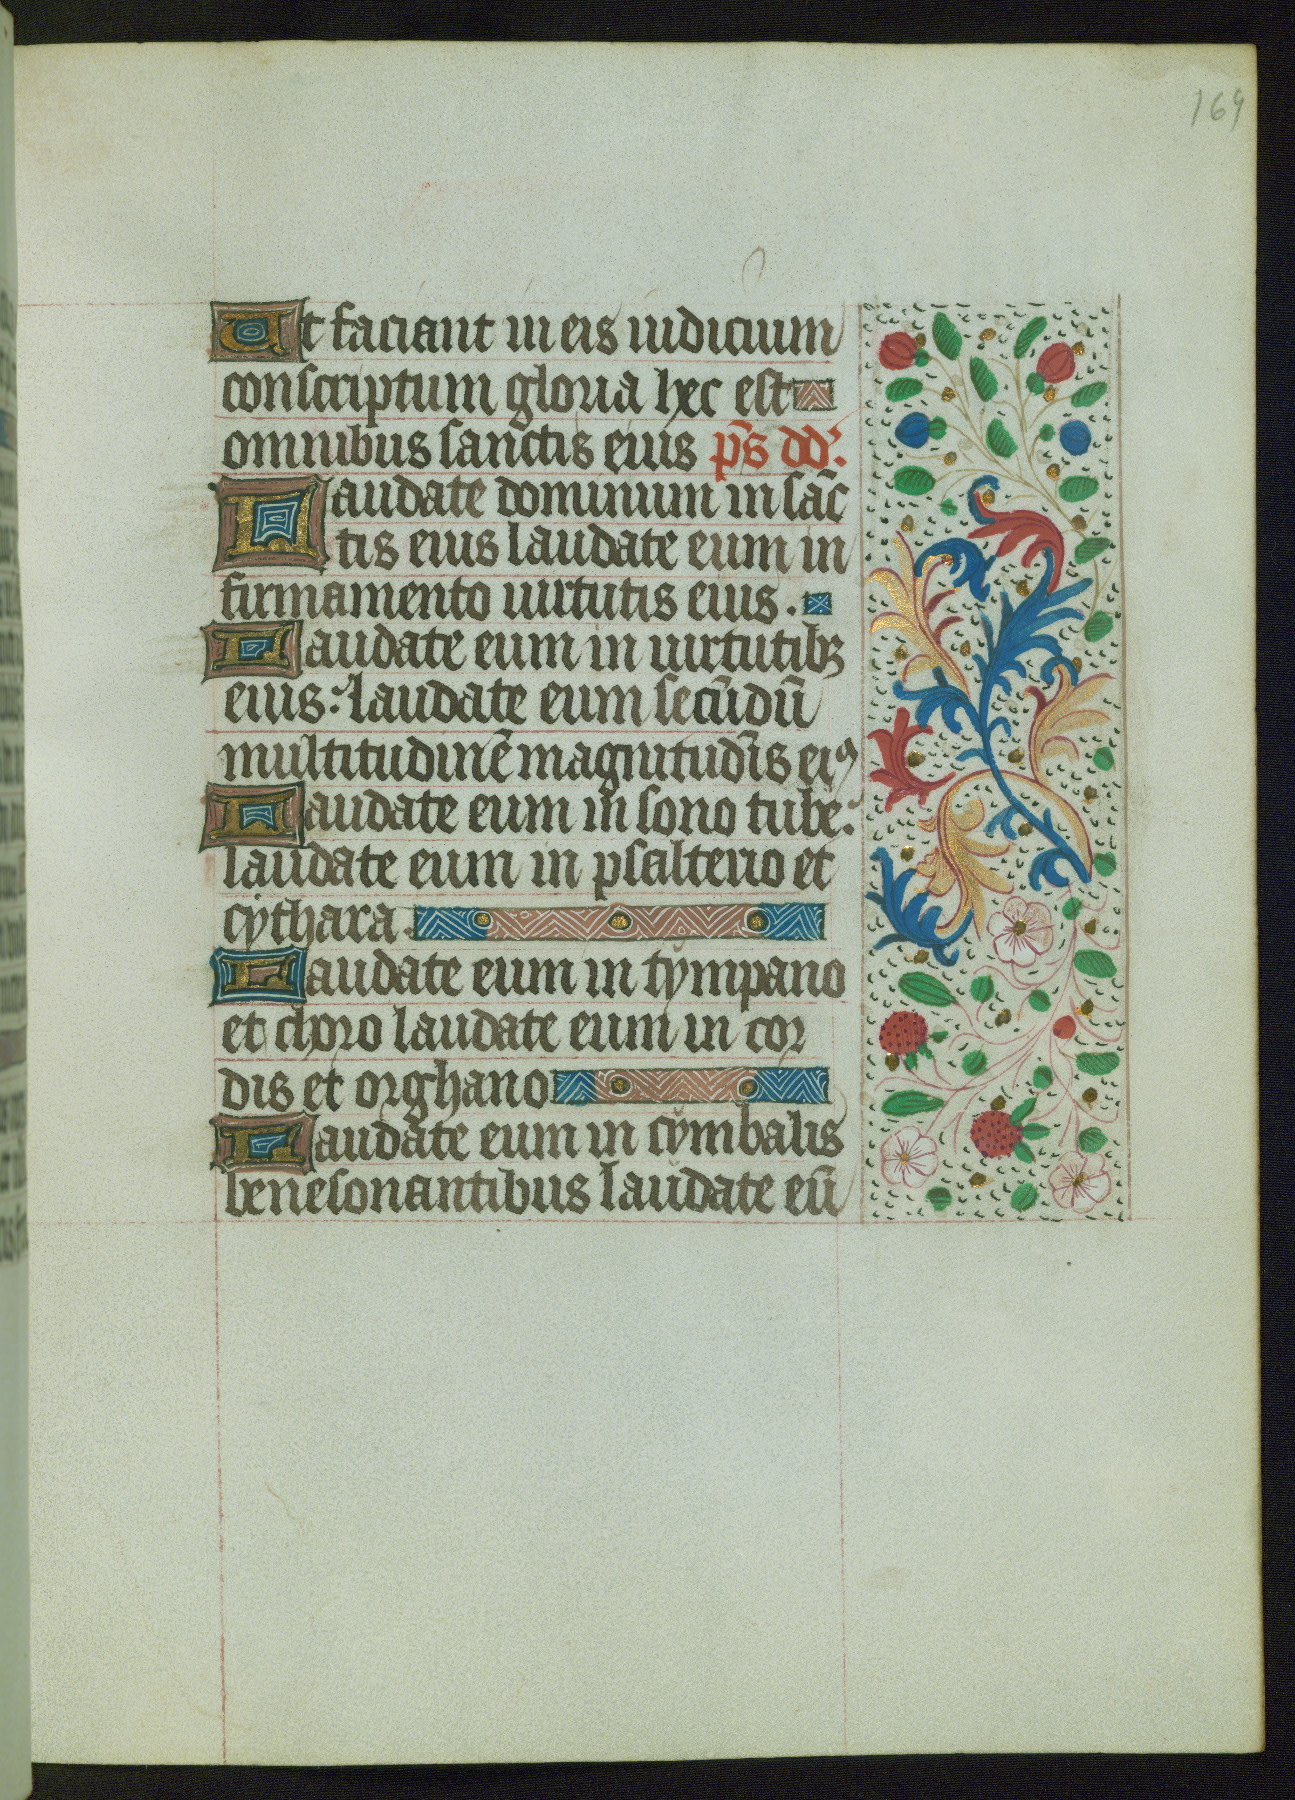 169
Ut faciant in eis iudicium
conscriptum gloria hec est
omnibus sanctis eius p̄s dd᷒:
Laudate dominum in sāc
tis eius laudate eum in
firmamento uirtutis eius .
Laudate eum in uirtutibꝫ
eius: laudate eum secūdū
multitudinē magnitudīs eiꝰ
Laudate eum in sono tube:
laudate eum in psalterio et
cythara .
Laudate eum in tympano
et choro laudate eum in cor
dis et orghano
Laudate eum in cymbalis
benesonantibus laudate eū